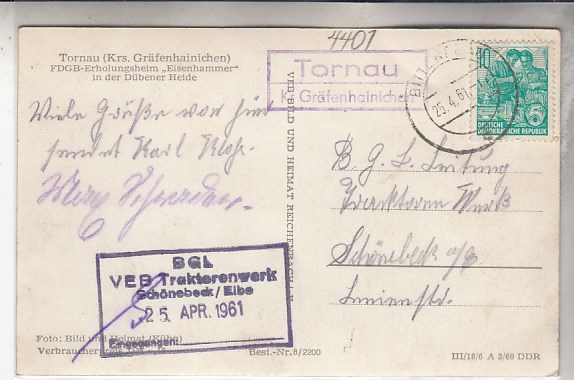 4401
Tornau (Krs. Gräfenhainichen)
FDGB-Erholungsheim „Eisenhammer"
in der Dübener Heide
Viele Grüße von hier
sendet Karl
Tornau
Kr. Gräfenhainichen
25.4.61
10
5
DEUTSCHE
DEMOKRATISCHE REPUBLIK
VEB BILD UND HEIMAT REICHENBACH I. V.
B. G. L. Leitung
Traktoren Werk
Schönebeck a/E
BGL
VEB Traktorenwerk
Schönebeck / Elbe
25. APR. 1961
Eingegangen:
Foto: Bild und Heimat (Kühn)
Verbraucherpreis
Best.-Nr. 8/2200
III/18/6 A 3/60 DDR